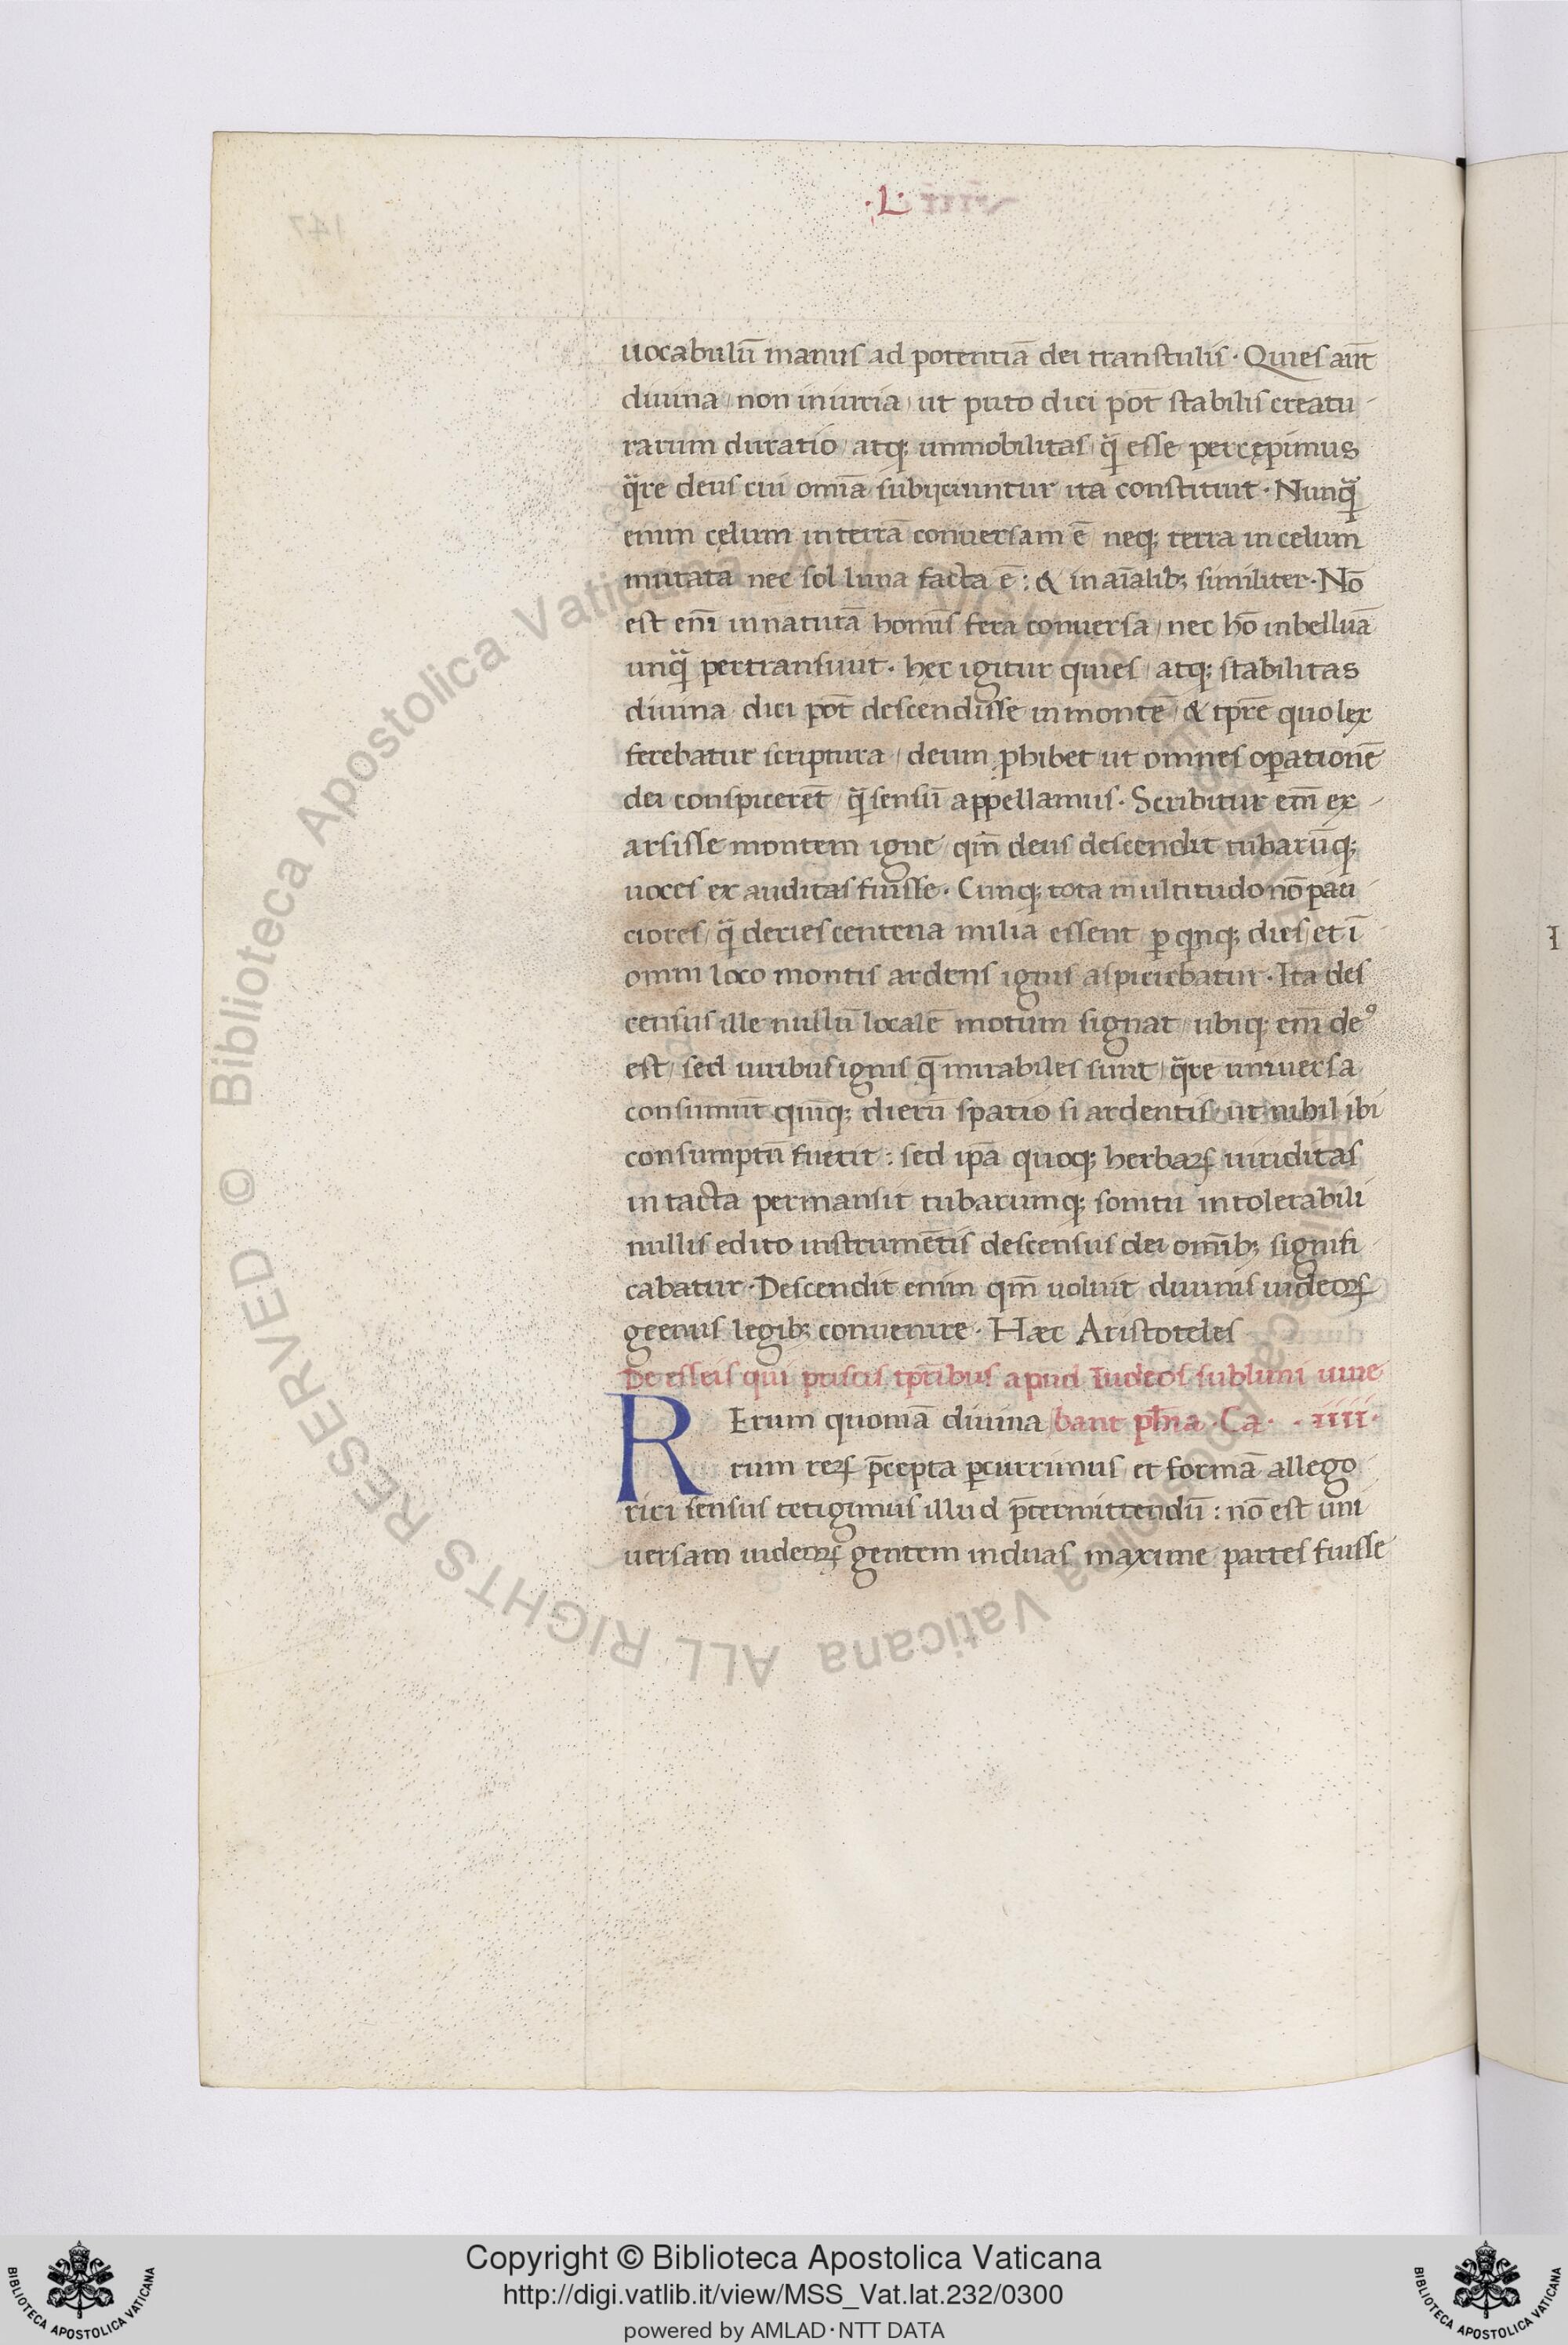 ·L·
uocabulū manus ad potentiā dei transtulis · Quies aūt
diuina / non iniuria / ut puto dici pōt stabilis creatu
rarum duratio / atq; immobilitas / q̈ esse percępimus
q̈re deus cui omīa subijciuntur ita constituit · Nunq̈
enim cęlum in terrā conuersam ē / neq; terra in celum
mutata nec sol luna facta ē : & in aīalib; similiter · Nō
est enī in naturā homīs fera conuersa / nec hō in belluā
unq̈ pertransiuit · hęc igitur quies / atq; stabilitas
diuina dici pōt descendisse in monte / & tp̄re quo lex
ferebatur scriptura / deum p̱hibet ut omnes op̱ationē
dei conspicerēt / q̈ sensū appellamus · Scribitur em̄ ex
arsisse montem igne / qm̄ deus descendit tubarūq;
uoces ex auditas fuisse · Cunq; tota multitudo nō pau
ciores / q̈ decies centena milia essent p̱ qnq; dies / et ī
omni loco montis ardens ignis aspiciebatur · Ita des
census ille nullū localē motum signat / ubiq; em̄ deꝰ
est / sed uiribus ignis q̄ mirabiles sunt / q̈re uniuersa
consumūt quīq; dierū spatio si ardentis / ut nihil ibi
consumptū fuerit : sed ip̄a quoq; herbaꝝ uiriditas
in tacta permansit tubarumq; sonitu intolerabili
nullis edito instrumētis descensus dei omīb; signifi
cabatur · Descendit enim qm̄ uoluit diuinis iudeoꝝ
geenus legib; conuenire · Hæc Aristoteles
De esseis qui priscis tp̄ribus apud Iudeos sublimi uiue
Erum quoniā diuina bant ph̄ia · Ca · · iiii ·
rum reꝝ p̄cepta p̱currimus / et formā allego
rici sensus tetigimus illud p̄termittendū : nō est uni
uersam iudeoꝝ gentem in duas maxime partes fuisse
Copyright © Biblioteca Apostolica Vaticana
http://digi.vatlib.it/view/MSS_Vat.lat.232/0300
powered by AMLAD·NTT DATA
© Biblioteca Apostolica Vaticana ALL RIGHTS RESERVED
BIBLIOTECA APOSTOLICA VATICANA
BIBLIOTECA APOSTOLICA VATICANA